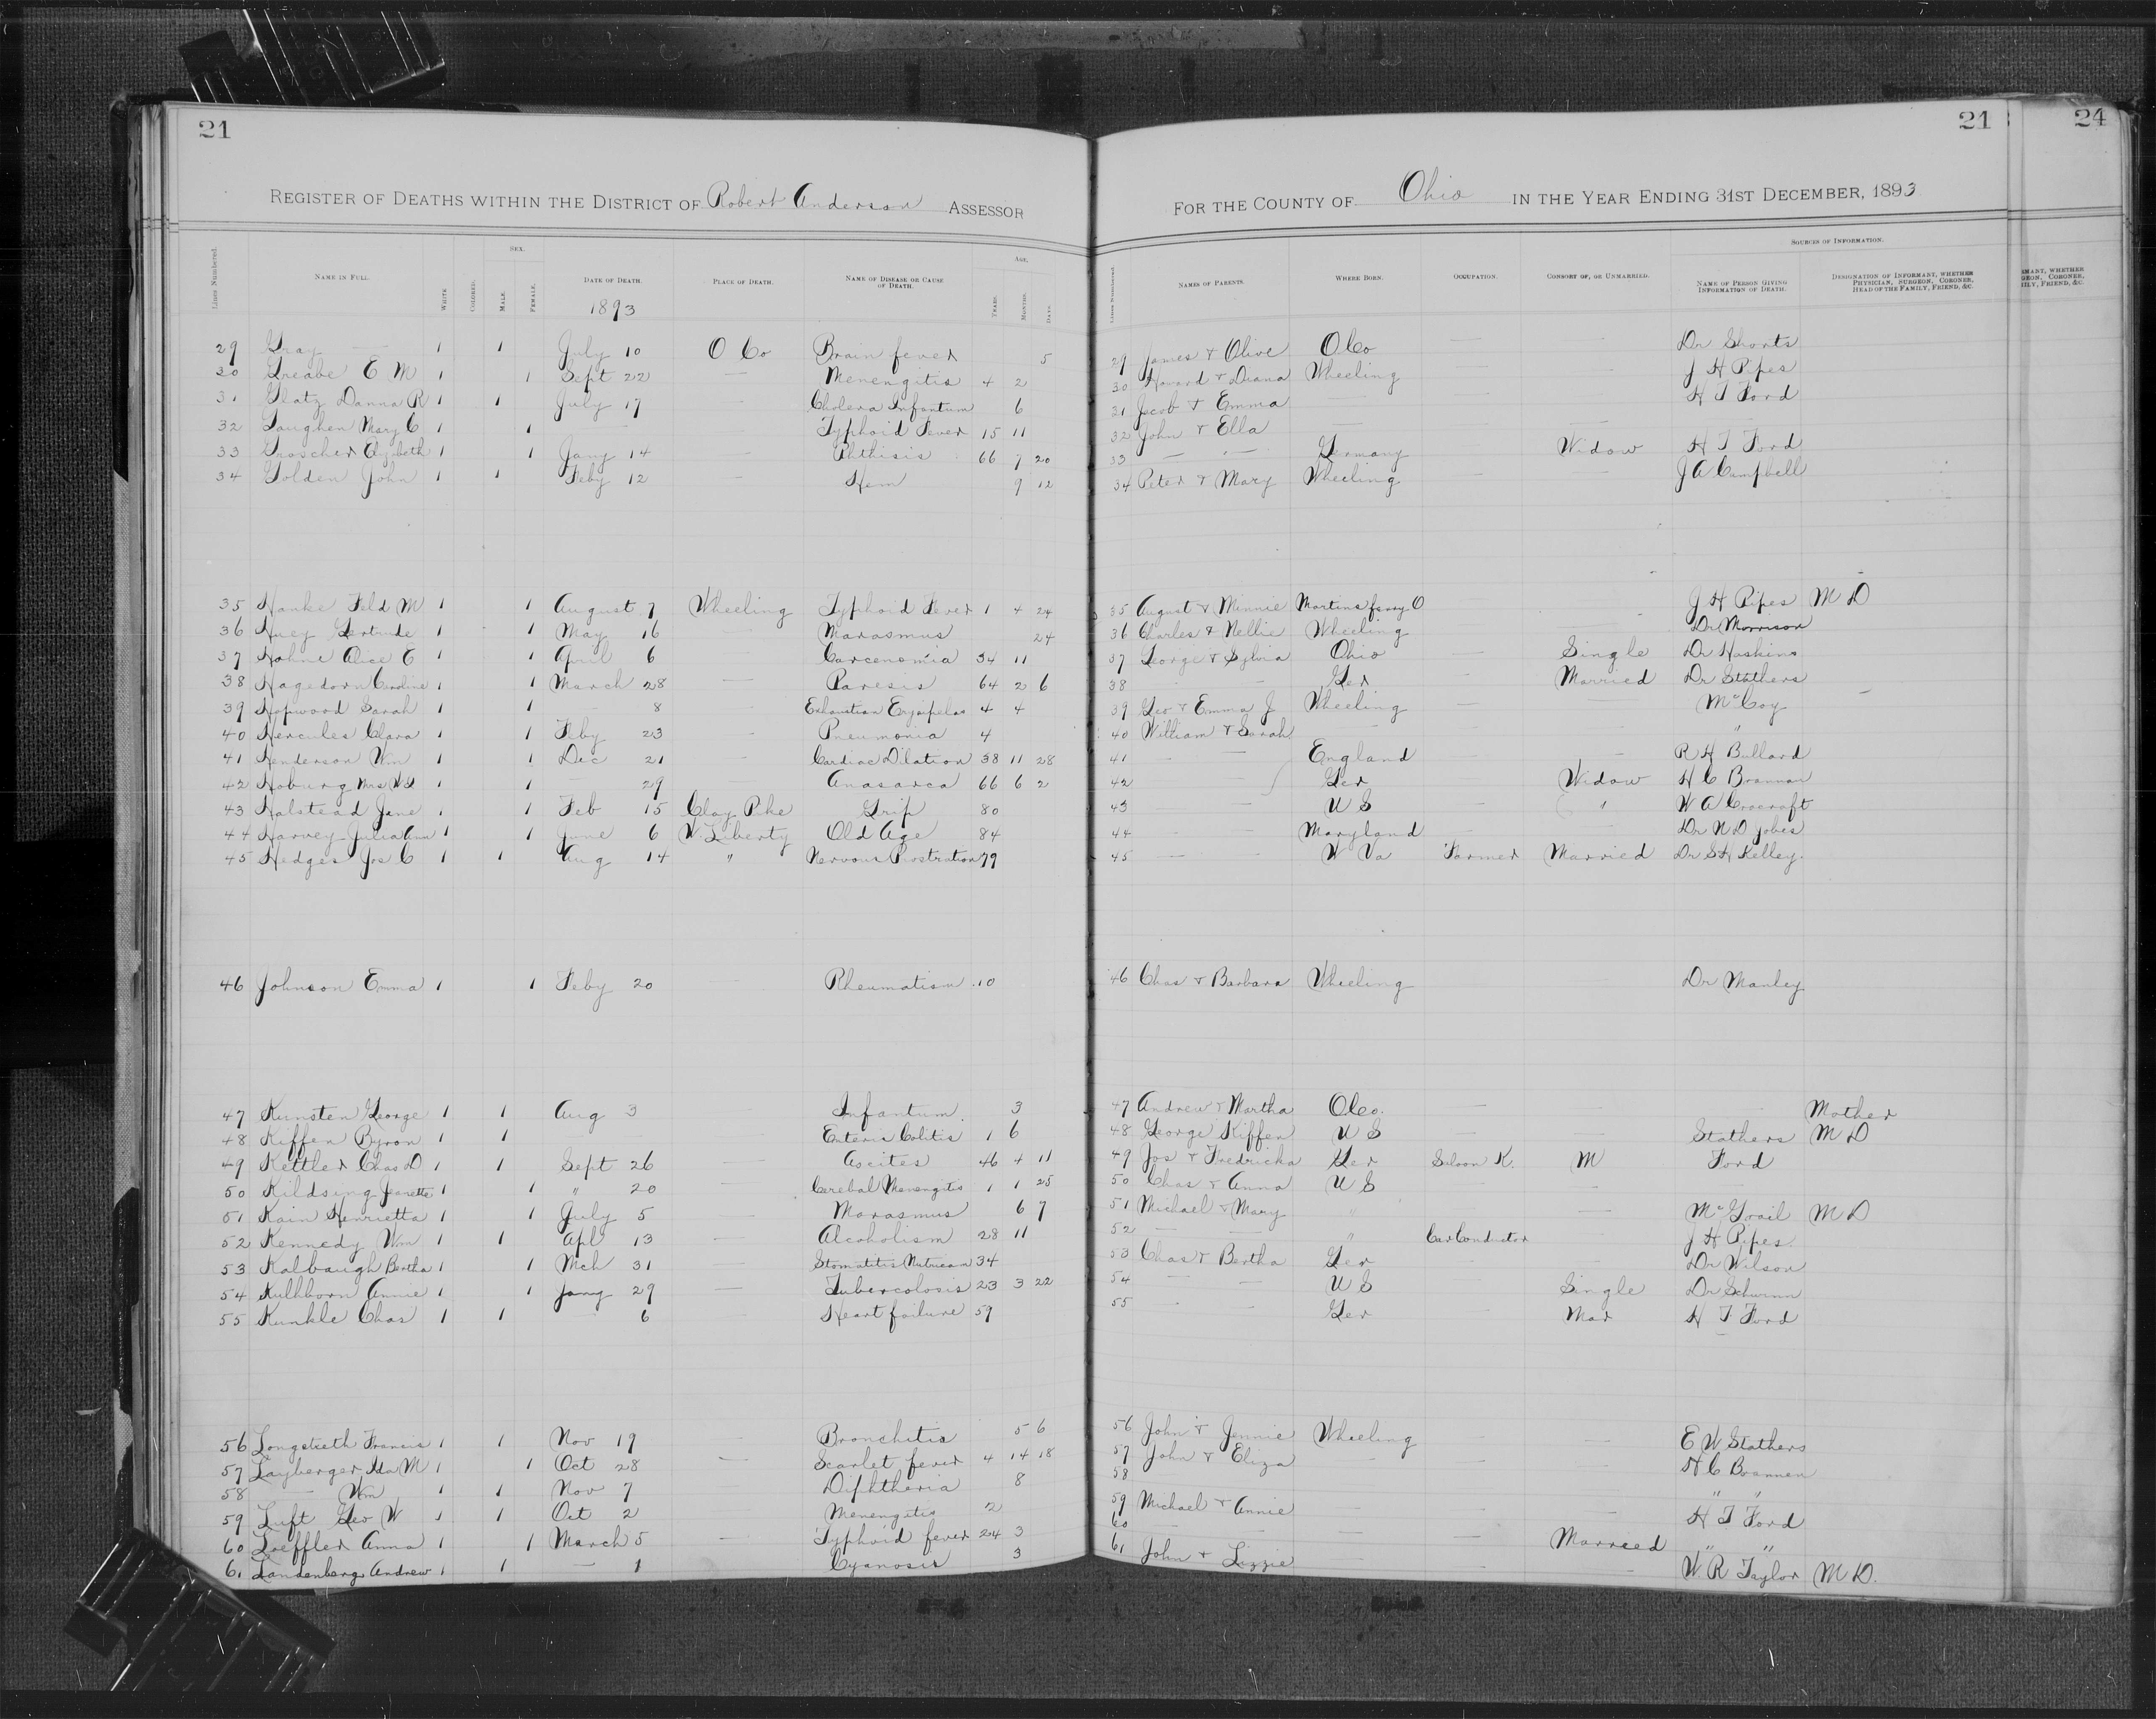 21
REGISTER OF DEATHS WITHIN THE DISTRICT OF Robert Anderson ASSESSOR
Lines Numbered. NAME IN FULL. WHITE. COLORED. SEX. MALE. FEMALE. DATE OF DEATH. PLACE OF DEATH. NAME OF DISEASE OR CAUSE OF DEATH. AGE. YEARS. MONTHS. DAYS.
1893
29 Gray — 1 1 July 10 O Co Brain fever 5
30 Greabe E M 1 1 Sept 22 — Menengitis 4 2
31 Glatz Danna R 1 1 July 17 — Cholera Infantum 6
32 Gaughen Mary C 1 1 — — Typhoid Fever 15 11
33 Groscher Elizabeth 1 1 Jany 14 — Phthisis 66 7 20
34 Golden John 1 1 Feby 12 — Hem 9 12
35 Hanke Feld M 1 1 August 7 Wheeling Typhoid Fever 1 4 24
36 Huey Gertrude 1 1 May 16 — Marasmus 24
37 Hohne Alice E 1 1 April 6 — Carcenomia 34 11
38 Hagedorn Caroline 1 1 March 28 — Paresis 64 2 6
39 Hopwood Sarah 1 1 — 8 — Exhaustion Erysipelas 4 4
40 Hercules Clara 1 1 Feby 23 — Pneumonia 4
41 Henderson Wm 1 1 Dec 21 — Cardiac Dilation 38 11 28
42 Hoburg Mrs 1 1 — 29 — Anasarca 66 6 2
43 Halstead Jane 1 1 Feb 15 Clay Pike Grip 80
44 Harvey Julia Ann 1 1 June 6 W. Liberty Old Age 84
45 Hedges Jos C 1 1 Aug 14 " Nervous Prostration 79
46 Johnson Emma 1 1 Feby 20 — Rheumatism 10
47 Kunsten George 1 1 Aug 3 Infantum 3
48 Kiffen Byron 1 1 — — Enteris Colitis 1 6
49 Kettler Chas D 1 1 Sept 26 — Ascites 46 4 11
50 Kildsing Jeanette 1 1 " 20 — Cerebal Menengitis 1 1 25
51 Kain Henrietta 1 1 July 5 — Marasmus 6 7
52 Kennedy Wm 1 1 Apl 13 — Alcoholism 28 11
53 Kalbaugh Bertha 1 1 Mch 31 Stomatitis 34
54 Kulhborn Annie 1 1 Jany 29 — Tubercolosis 23 3 22
55 Kunkle Chas 1 1 — 6 Heart failure 59
56 Longstreth Francis 1 1 Nov 19 — Bronchitis 5 6
57 Layberger Ida M 1 1 Oct 28 — Scarlet fever 4 14 18
58 — Wm 1 1 Nov 7 Diphtheria 8
59 Luft Geo W 1 1 Oct 2 Menengitis 2
60 Loeffler Anna 1 1 March 5 Typhoid fever 24 3
61 Landenberg Andrew 1 1 — 1 Cyanosis 3
21
24
FOR THE COUNTY OF Ohio IN THE YEAR ENDING 31ST DECEMBER, 1893
Lines Numbered. NAMES OF PARENTS. WHERE BORN. OCCUPATION. CONSORT OF, OR UNMARRIED. SOURCES OF INFORMATION. NAME OF PERSON GIVING INFORMATION OF DEATH. DESIGNATION OF INFORMANT, WHETHER PHYSICIAN, SURGEON, CORONER, HEAD OF THE FAMILY, FRIEND, &C.
29 James & Olive O Co — — Dr Shorts
30 Howard & Diana Wheeling — — J H Pipes
31 Jacob & Emma — — — H T Ford
32 John & Ella — — —
33 — Germany Widow H T Ford
34 Peter & Mary Wheeling — — J A Campbell
35 August & Minnie Martins ferry O — J H Pipes M D
36 Charles & Nellie Wheeling — Dr Morrison
37 George & Sylvia Ohio — Single Dr Haskins
38 — Ger — Married Dr Stathers
39 Geo & Emma J Wheeling — — McCoy
40 William & Sarah — — "
41 — England — R H Bullard
42 — Ger Widow H C Brannan
43 — U S — " W A Cracraft
44 — Maryland — — Dr N D Jobes
45 — W Va Farmer Married Dr S H Kelley
46 Chas & Barbara Wheeling — — Dr Manley
47 Andrew & Martha O Co. — — Mother
48 George Kiffen U S — — Stathers M D
49 Jos & Fredricka Ger Saloon K. M Ford
50 Chas & Anna U S — —
51 Michael & Mary " — — McGrail M D
52 — " Car Conductor — J H Pipes
53 Chas & Bertha Ger — Dr Wilson
54 — U S Single Dr Schwinn
55 — Ger Mar H T Ford
56 John & Jennie Wheeling — — E W Stathers
57 John & Eliza — — — H C Brannen
58 " "
59 Michael & Annie — — — H T Ford
60 — — — Married " "
61 John & Lizzie — — — W. R Taylor M D.